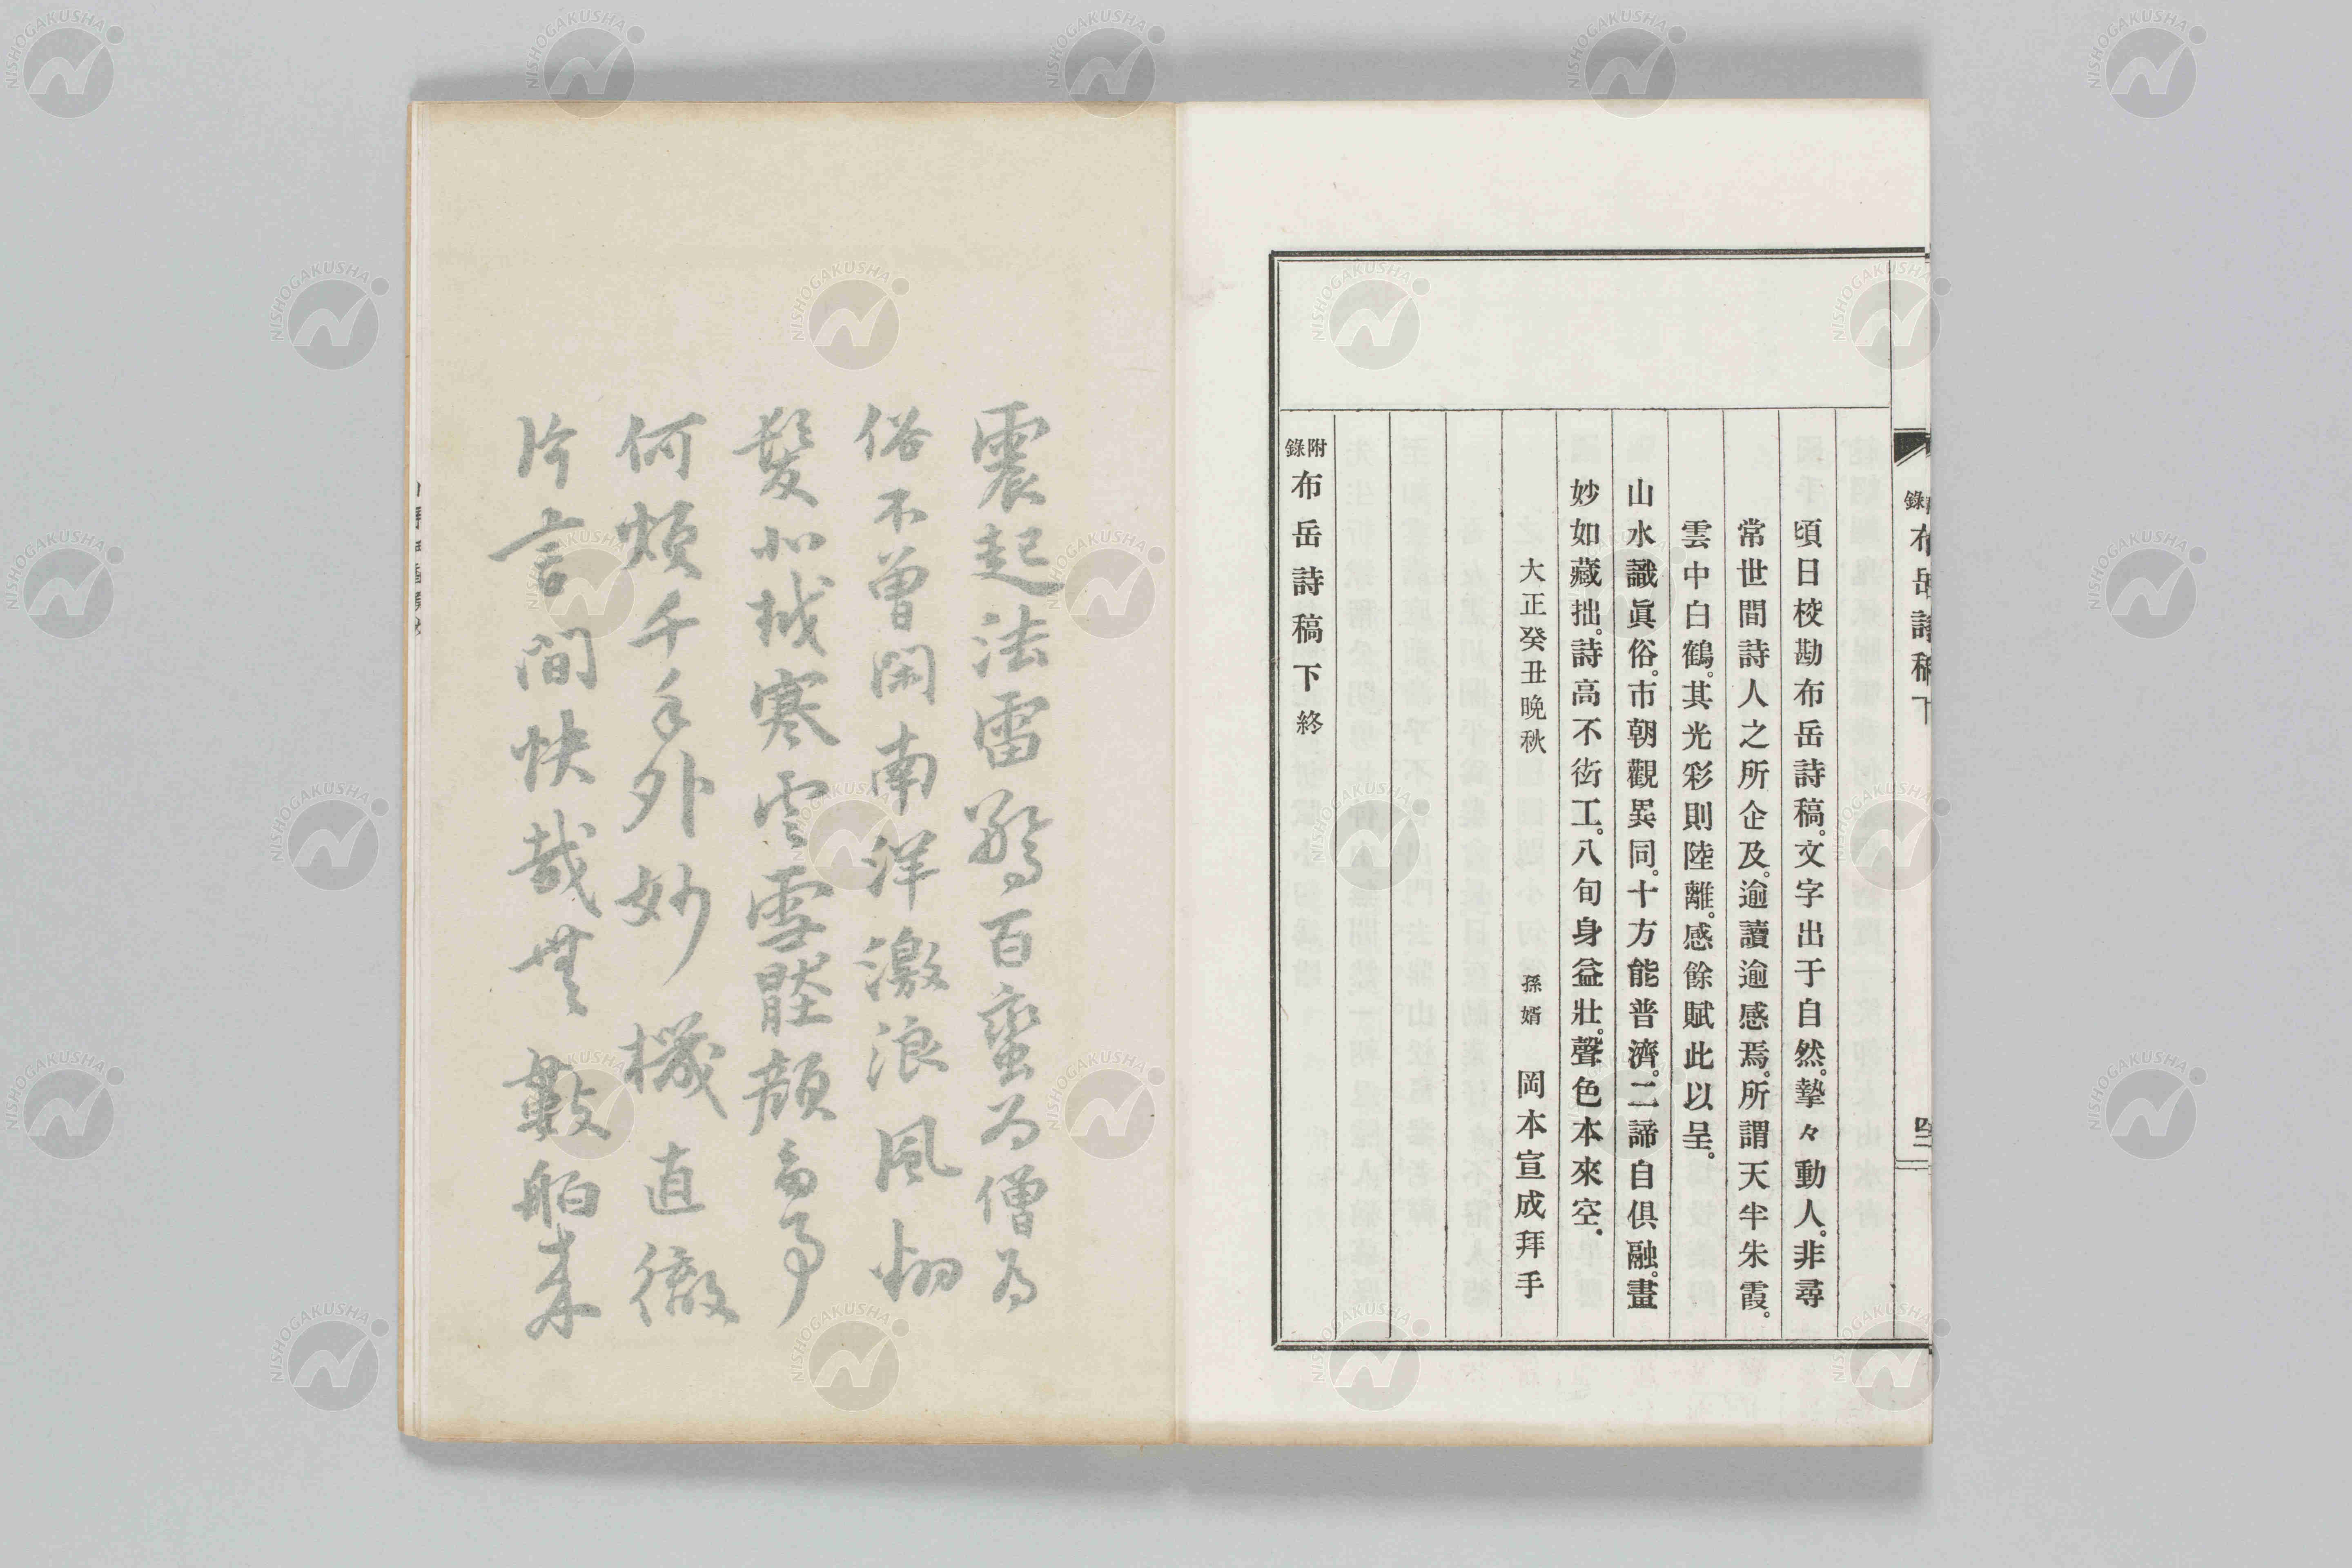 錄布岳詩稿下
頃日校勘布岳詩稿。文字出于自然。摯々動人。非尋
常世間詩人之所企及。逾讀逾感焉。所謂天半朱霞。
雲中白鶴。其光彩則陸離。感餘賦此以呈。
山水識眞俗。市朝觀異同。十方能普濟。二諦自俱融。畫
妙如藏拙。詩高不衒工。八旬身益壯。聲色本來空。
大正癸丑晚秋 孫婿 岡本宣成拜手
附錄布岳詩稿下終
震起法雷驚百蛮为僧为
俗不曾閑南洋激浪風
髮北城寒雲雪顏
何煩千手外妙機直徹
片言間快哉無數舶来
NISHOGAKUSHA